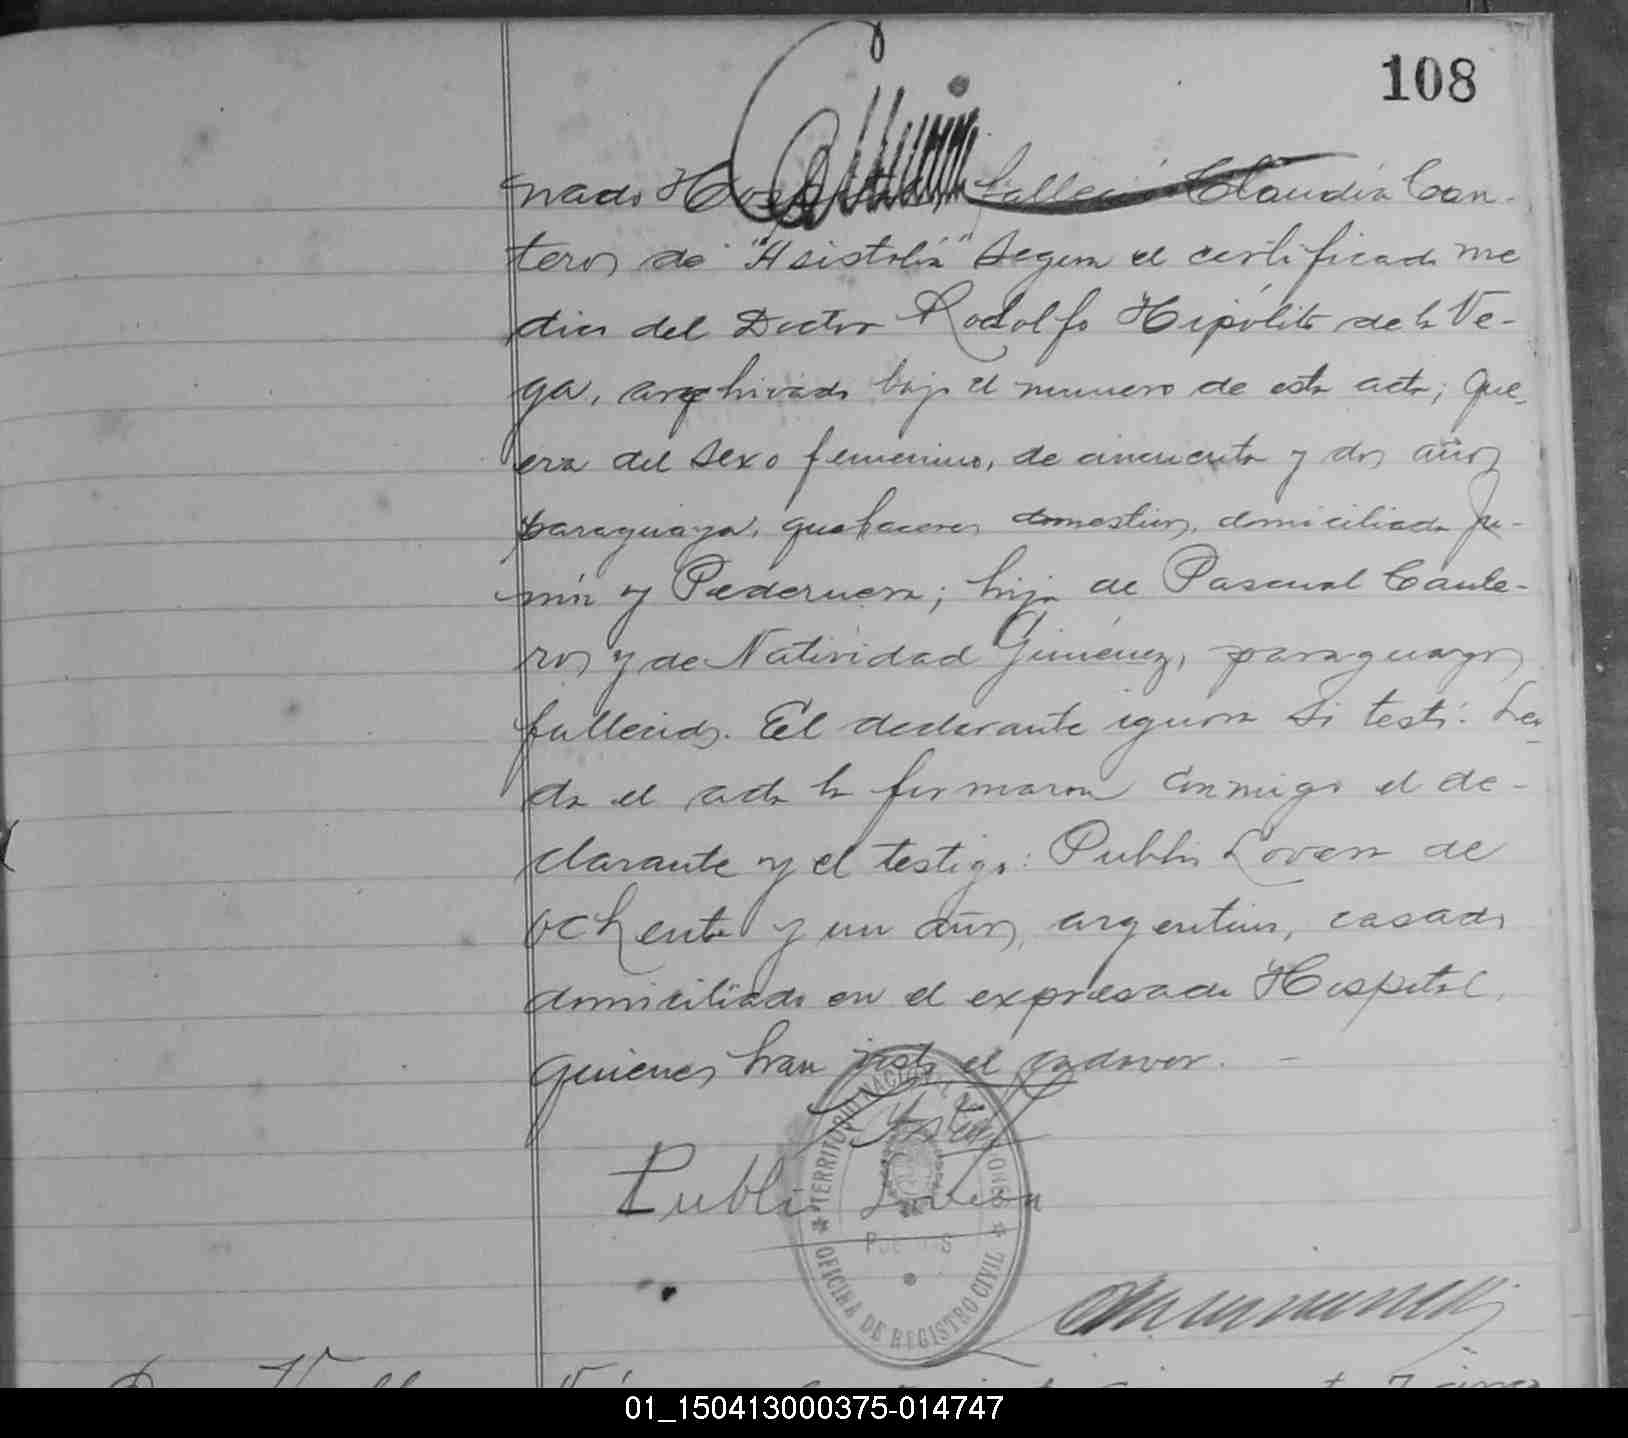 108
nado Hospital, falleció Claudia Can-
teros de "Asistolia" segun el certificado me
dico del Doctor Rodolfo Hipólito de la Ve-
ga, archivado bajo el numero de esta acta; que
era del sexo femenino, de cincuenta y dos años
paraguaya, quehaceres domesticos, domiciliada Ju-
nin y Pedernera; hija de Pascual Cante-
ros y de Natividad Giménez, paraguayos
fallecidos. El declarante ignora si testó. Lei-
da el acta la firmaron conmigo el de-
clarante y el testigo: Publio Lovera de
ochenta y un años, argentino, casado
domiciliado en el expresado Hospital,
quienes han visto el cadaver. -
Publio Lovera
TERRITORIO NACIONAL DE MISIONES
POSADAS
OFICINA DE REGISTRO CIVIL
01_150413000375-014747